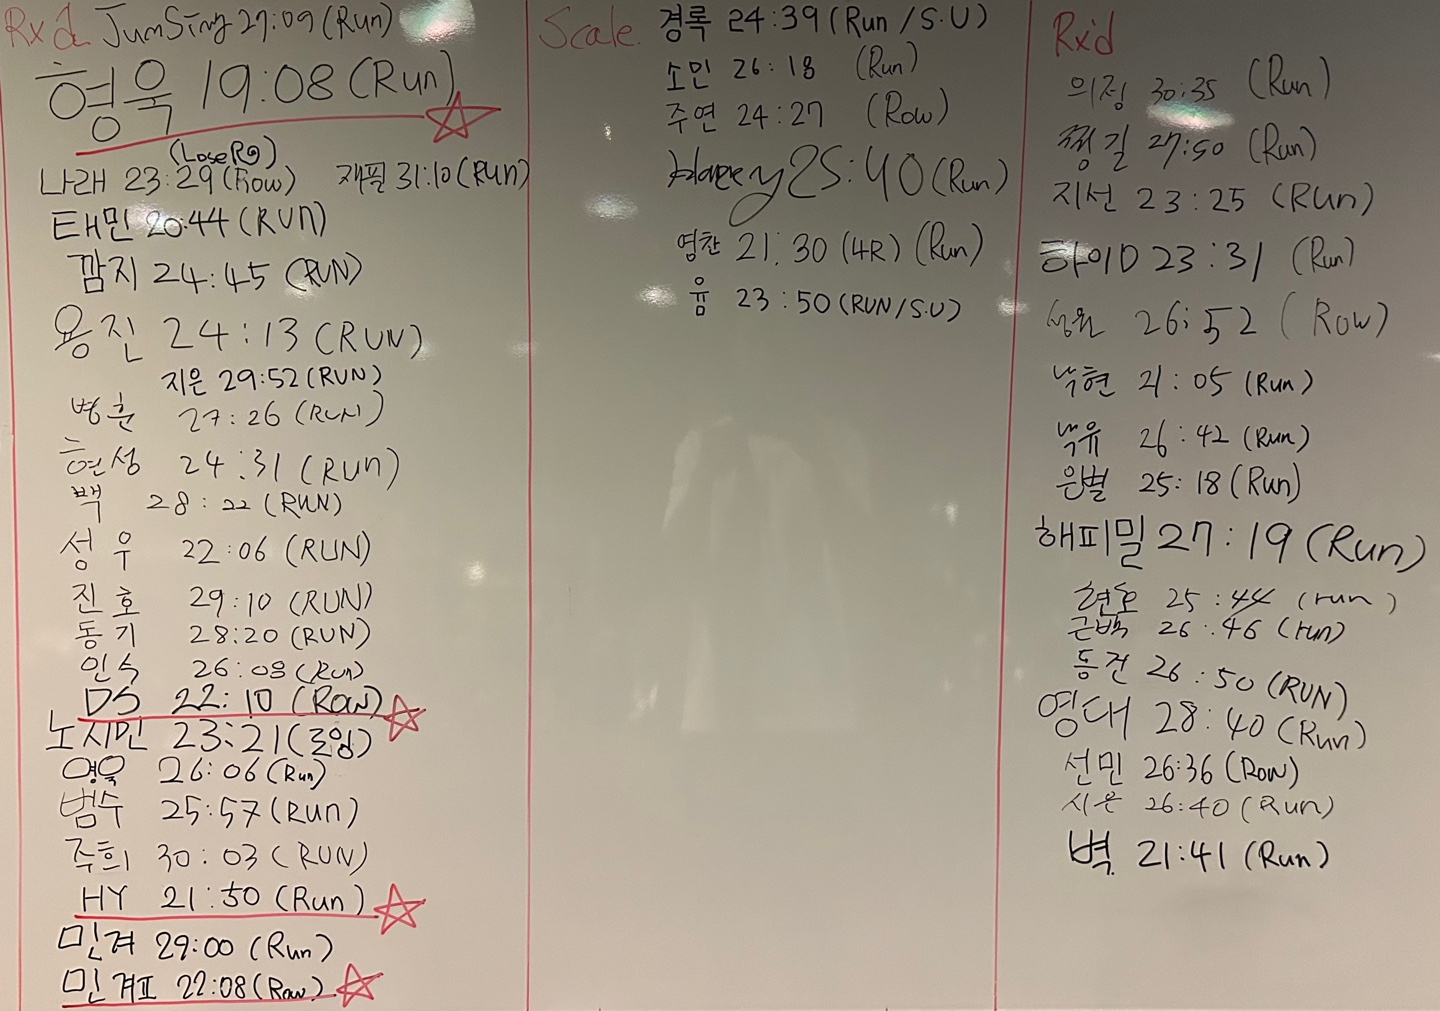 Rx'd JumSing 27:09 (Run)
형욱 19:08 (Run)
(Lose R)
나래 23:29 (Row) 재필 31:10 (RUN)
태민 20:44 (RUN)
깜지 24:45 (RUN)
용진 24:13 (RUN)
지은 29:52 (RUN)
병훈 27:26 (RUN)
현성 24:31 (RUn)
백 28:22 (RUN)
성우 22:06 (RUN)
진호 29:10 (RUN)
동기 28:20 (RUN)
인숙 26:08 (Run)
DS 22:10 (Row)
노시민 23:21 (로잉)
영욱 26:06 (Run)
범수 25:57 (Run)
주희 30:03 (RUN)
HY 21:50 (Run)
민겨 29:00 (Run)
민겨II 22:08 (Row)
Scale. 경록 24:39 (Run / S.U)
소민 26:18 (Run)
주연 24:27 (Row)
25:40 (Run)
영찬 21:30 (4R) (Run)
윰 23:50 (RUN/S.U)
Rx'd
의정 30:35 (Run)
쩡길 27:50 (Run)
지선 23:25 (RUn)
하이D 23:31 (Run)
성원 26:52 (Row)
낙현 21:05 (Run)
낙유 26:42 (Run)
은별 25:18 (Run)
해피밀 27:19 (Run)
현호 25:44 (run)
근백 26:46 (run)
동건 26:50 (RUN)
영대 28:40 (Run)
선민 26:36 (Row)
시온 26:40 (Run)
벽 21:41 (Run)